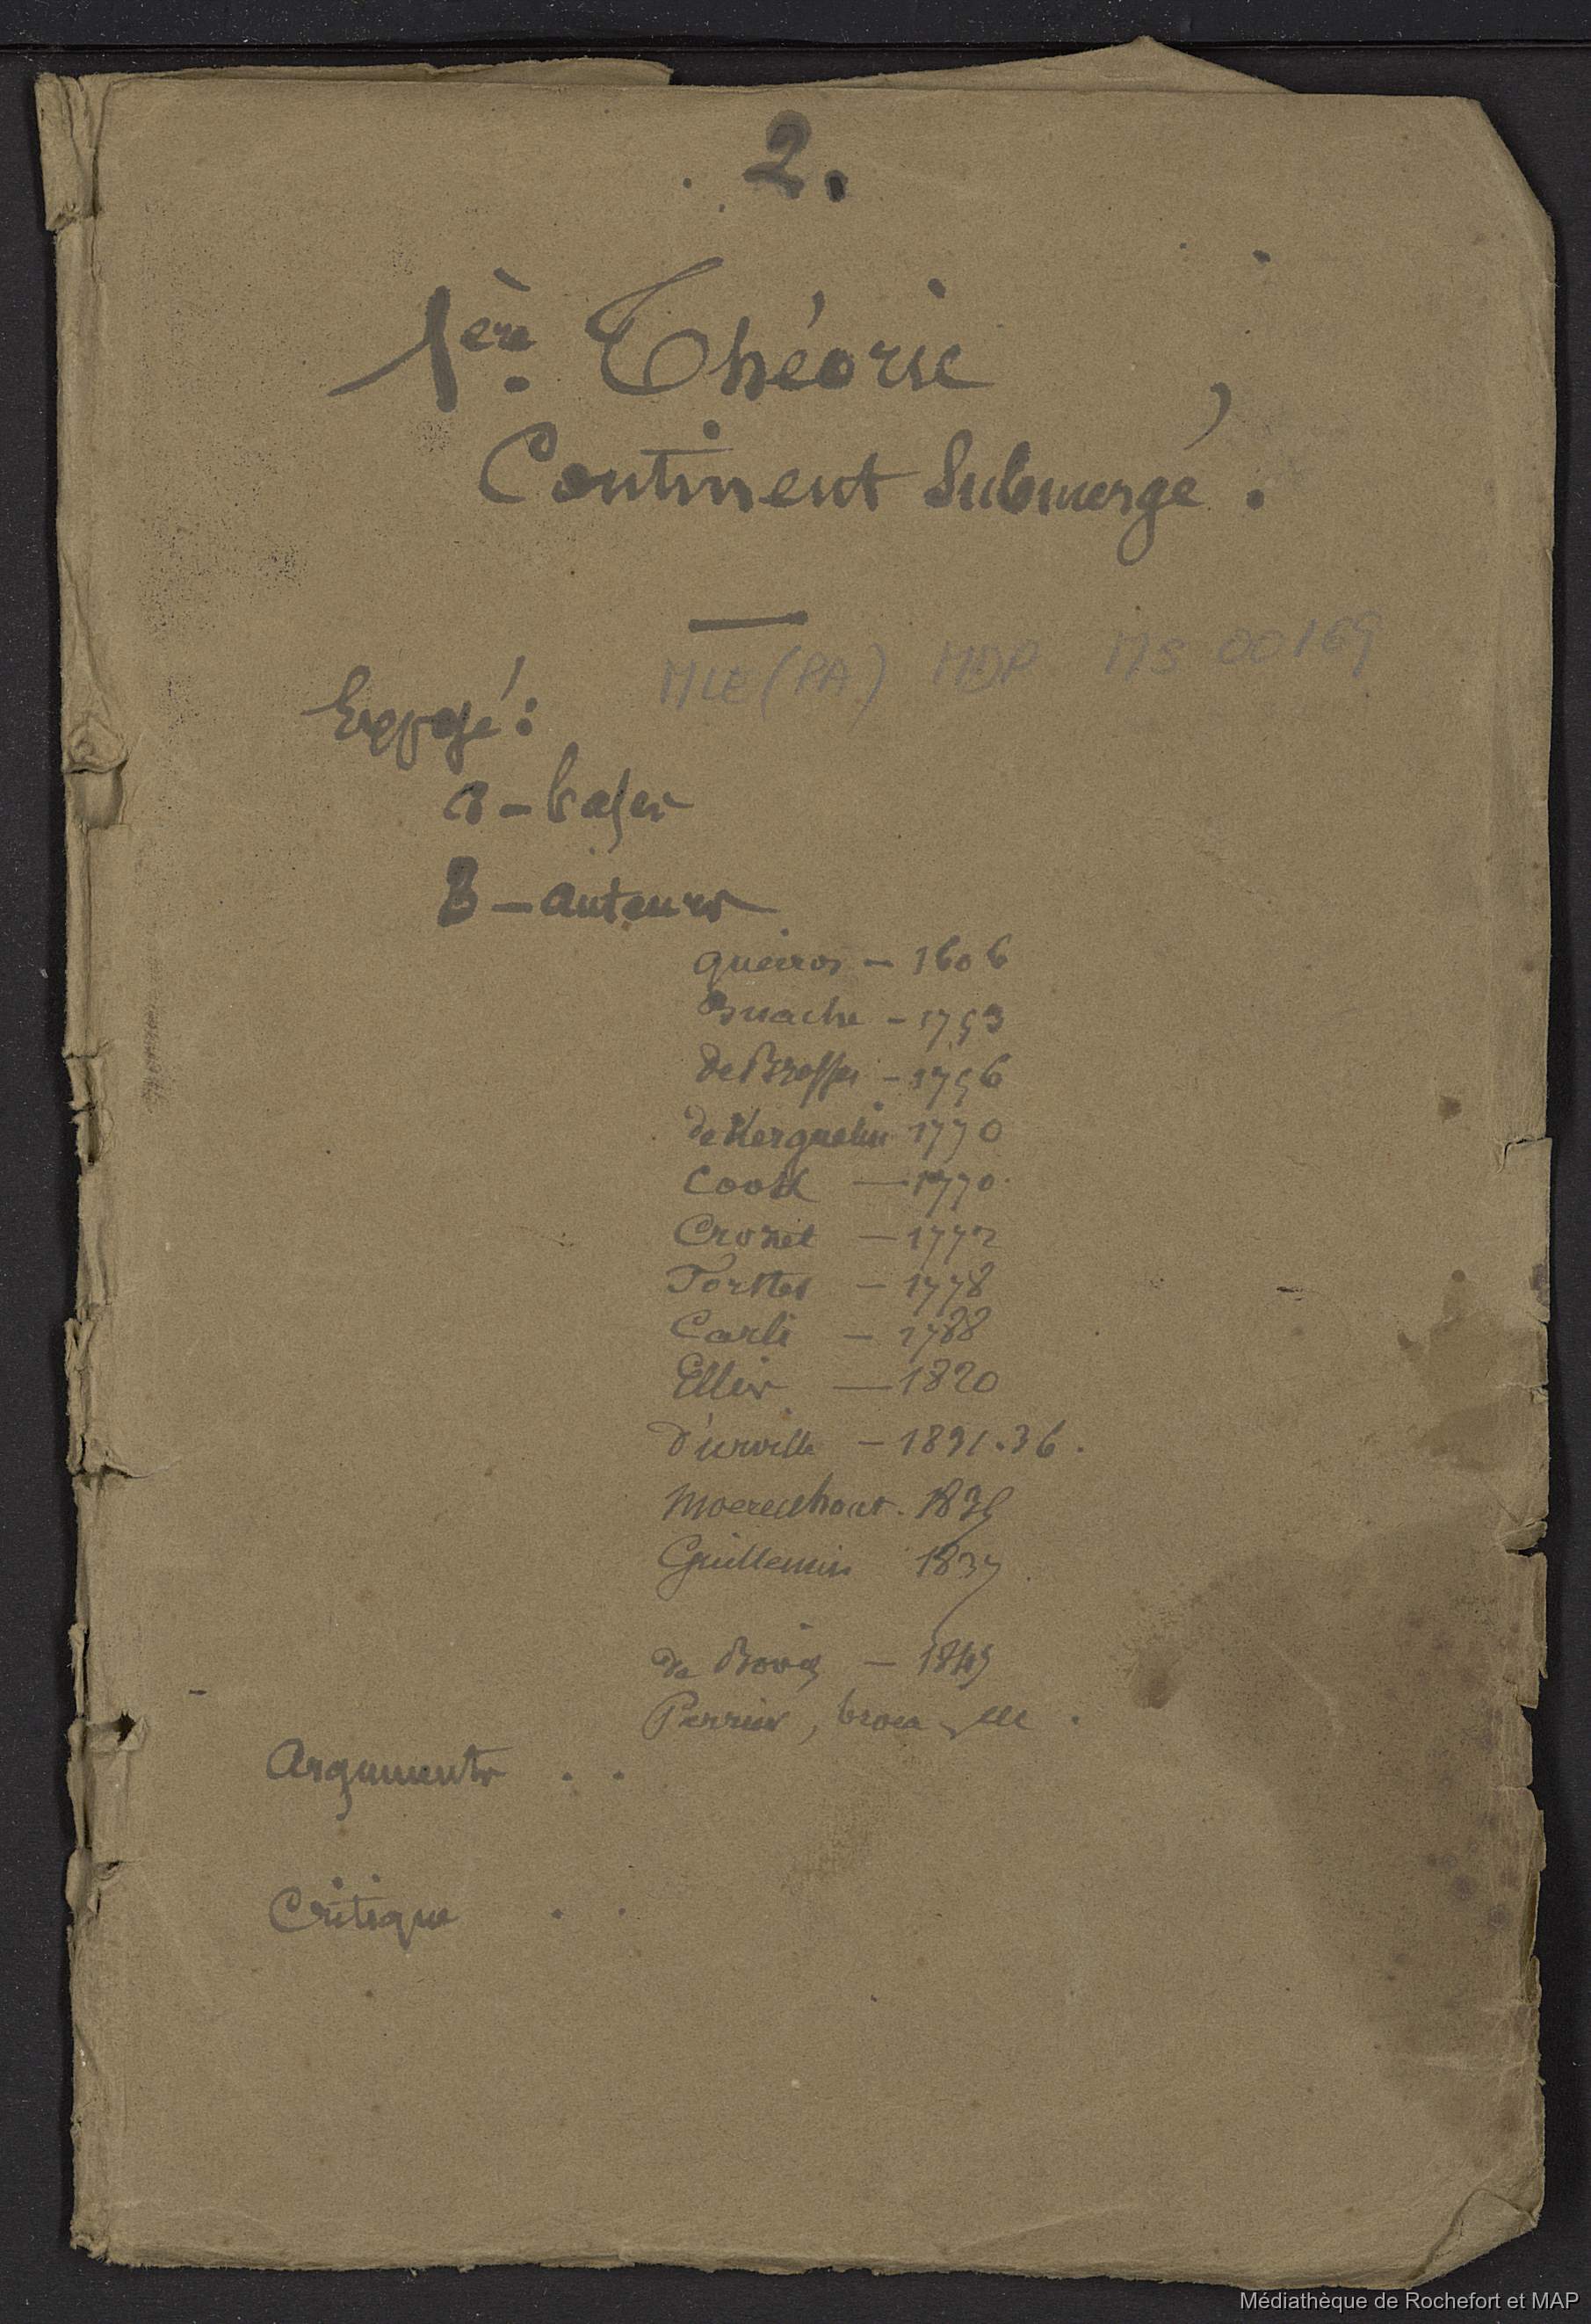 2.
1ère Théorie
Continent Submergé.
MLE (PA) MDP MS 00169
Exposé:
a - bases
B - auteurs
Queiros - 1606
Buache - 1753
de Brosses - 1756
de Kerguelen 1770
Cook - 1770.
Crozet - 1772
Forster - 1778
Carli - 1788
Ellis - 1820
D'urville - 1831.36.
Moerenhout. 1835
Guillemin 1837
de Bovis - 1845
Perrier, broca
Arguments . .
Critique . .
Médiathèque de Rochefort et MAP